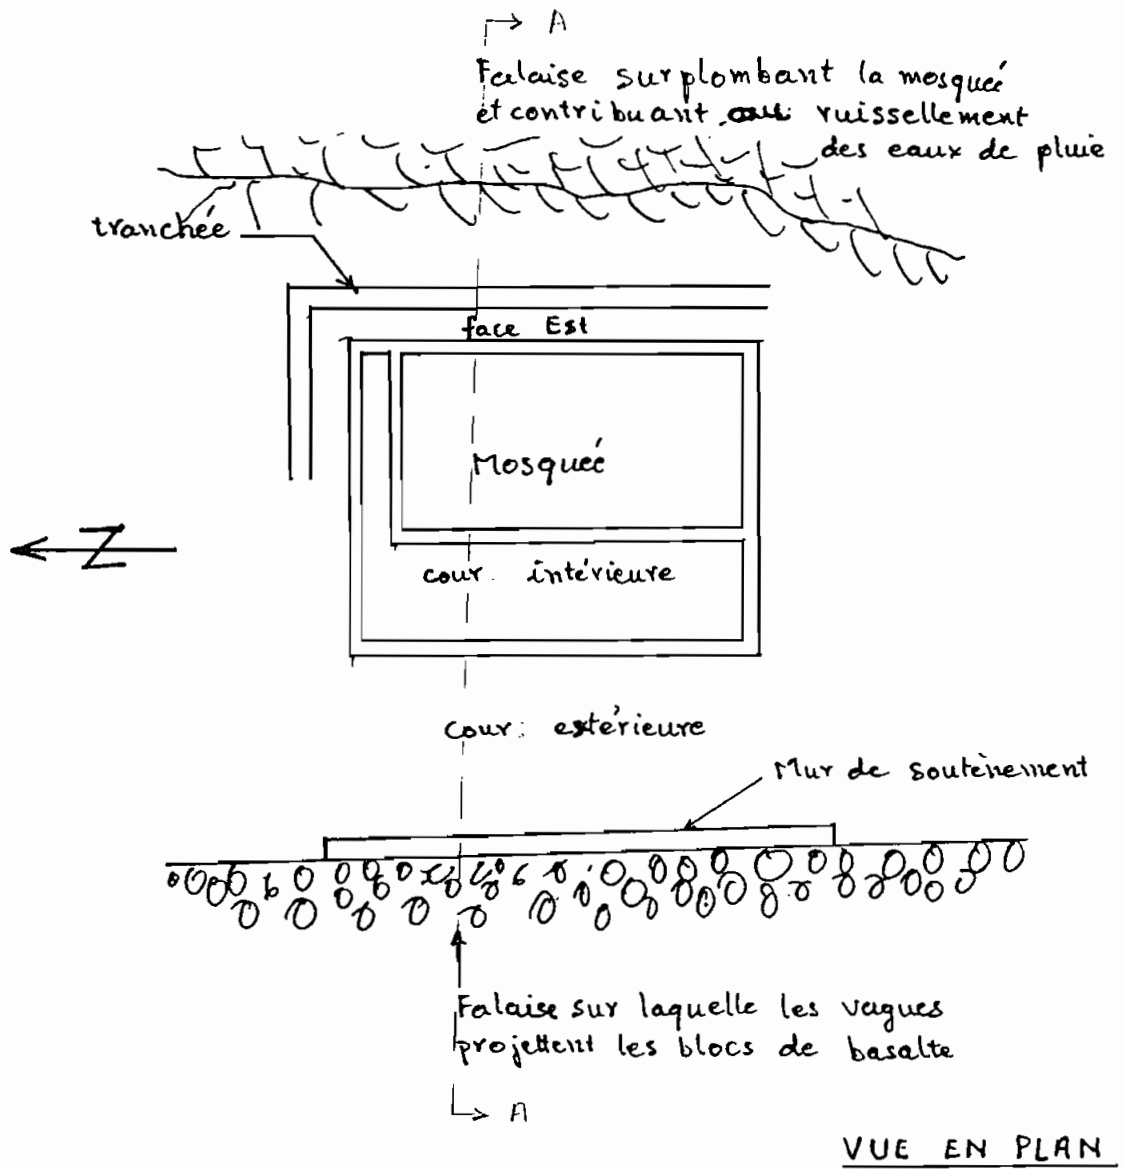 A
Falaise surplombant la mosqueé
et contribuant au ruissellement
des eaux de pluie
tranchée
face Est
Mosqueé
N
cour intérieure
cour extérieure
Mur de soutènement
Falaise sur laquelle les vagues
projettent les blocs de basalte
A
VUE EN PLAN